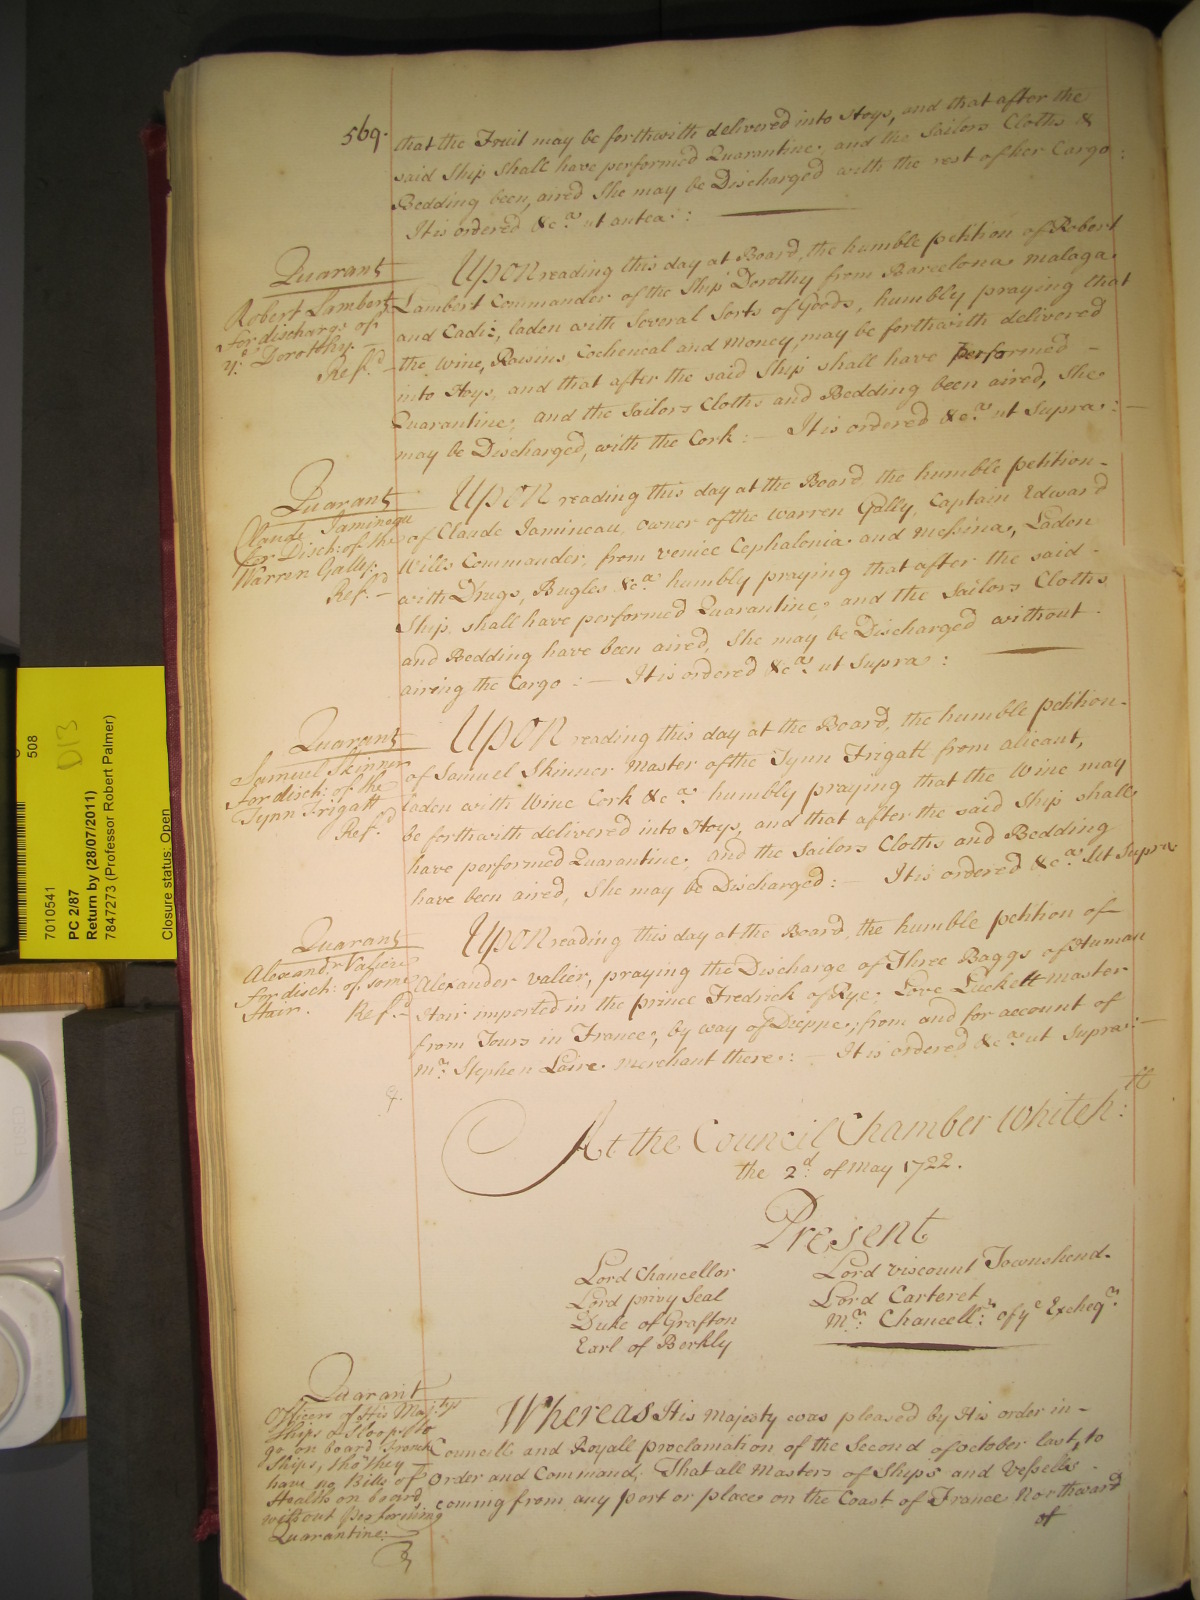 569.
that the Fruit may be forthwith delivered into Hoys, and that after the
said Ship shall have performed Quarantine, and the Sailors Cloths &
Bedding been, aired She may be Discharged with the rest of her Cargo:
It is ordered &c.a ut antea:
Quarant
Robert Lambert
for discharge of
y.e Dorothy.
Ref.d
UPON reading this day at Board, the humble petition of Robert
Lambert Commander of the Ship Dorothy from Barcelona malaga
and Cadiz, laden with Several Sorts of Goods, humbly praying that
the Wine, Raisins Cocheneal and Money, may be forthwith delivered
into Hoys, and that after the said Ship shall have performed -
Quarantine, and the Sailors Cloths and Bedding been aired, She
may be Discharged, with the Cork: - It is ordered &c.a ut Supra: -
Quarant
Claude Jamineau
for Disch: of the
Warren Gally.
Ref.d -
UPON reading this day at the Board the humble petition -
of Claude Jamineau, owner of the Warren Gally, Captain Edward
Wills Commander, from Venice Cephalonia and Messina, Laden
with Drugs, Bugles &c.a humbly praying that after the said -
Ship, shall have performed Quarantine, and the Sailors Cloths
and Bedding have been aired, She may be Discharged without
airing the Cargo: - It is ordered &c.a ut Supra:
Quarant
Samuel Skinner
for disch: of the
Tynn Frigatt
Ref.d
UPON reading this day at the Board, the humble petition -
of Samuel Skinner Master of the Tynn Frigatt from alicant,
laden with Wine Cork &c.a humbly praying that the Wine may
be forthwith delivered into Hoys, and that after the said Ship shall
have performed Quarantine, and the Sailors Cloths and Bedding
have been aired, She may be Discharged: - It is ordered &c.a Ut Supra
Quarant
Alexand.r Valier
for disch: of some
Hair. Ref.d
UPON reading this day at the Board, the humble petition of
Alexander Valier, praying the Discharge of Three Baggs of Human
Hair imported in the prince Fredrick of Rye, Love Luckett master
from Tours in France, by way of Dieppe, from and for account of
M.r Stephen Laire Merchant there: - It is ordered &c.a ut Supra: -
At the Council Chamber Whiteh:ll
the 2.d of May 1722.
Present
Lord Chancellor
Lord privy Seal
Duke of Grafton
Earl of Berkly
Lord Viscount Townshend.
Lord Carteret
M.r Chancell.r of y.e Excheq.r
Quarant
Officers of His Maj:tys
Ships & Sloops to
go on board French
Ships, tho' they
have no Bills of
Health on board
without performing
Quarantine:
Whereas His Majesty was pleased by His order in -
Councill and Royall proclamation of the Second of October last, to
Order and Command, That all Masters of Ships and Vessells
coming from any port or place on the Coast of France Northward
of
508
D13
7010541
PC 2/87
Return by (28/07/2011)
7847273 (Professor Robert Palmer)
Closure status: Open